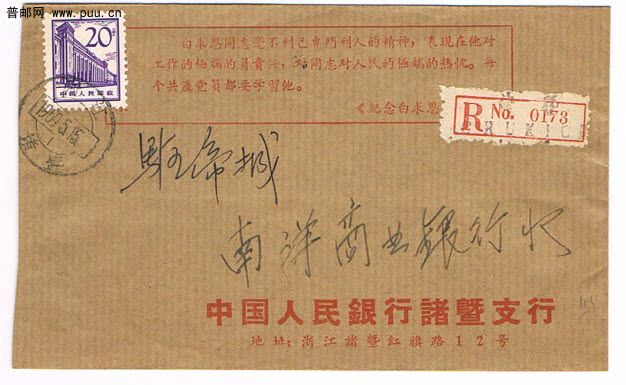 普邮网 www.puu.cn
20分
中国人民邮政
白求恩同志毫不利己专門利人的精神，表現在他对
工作的极端的負責任，对同志对人民的极端的热忱。每
个共產党員都要学習他。
《紀念白求恩
1969.5.16
R No. 0173
南洋商业銀行收
中国人民銀行諸暨支行
地址：浙江諸暨紅旗路12号